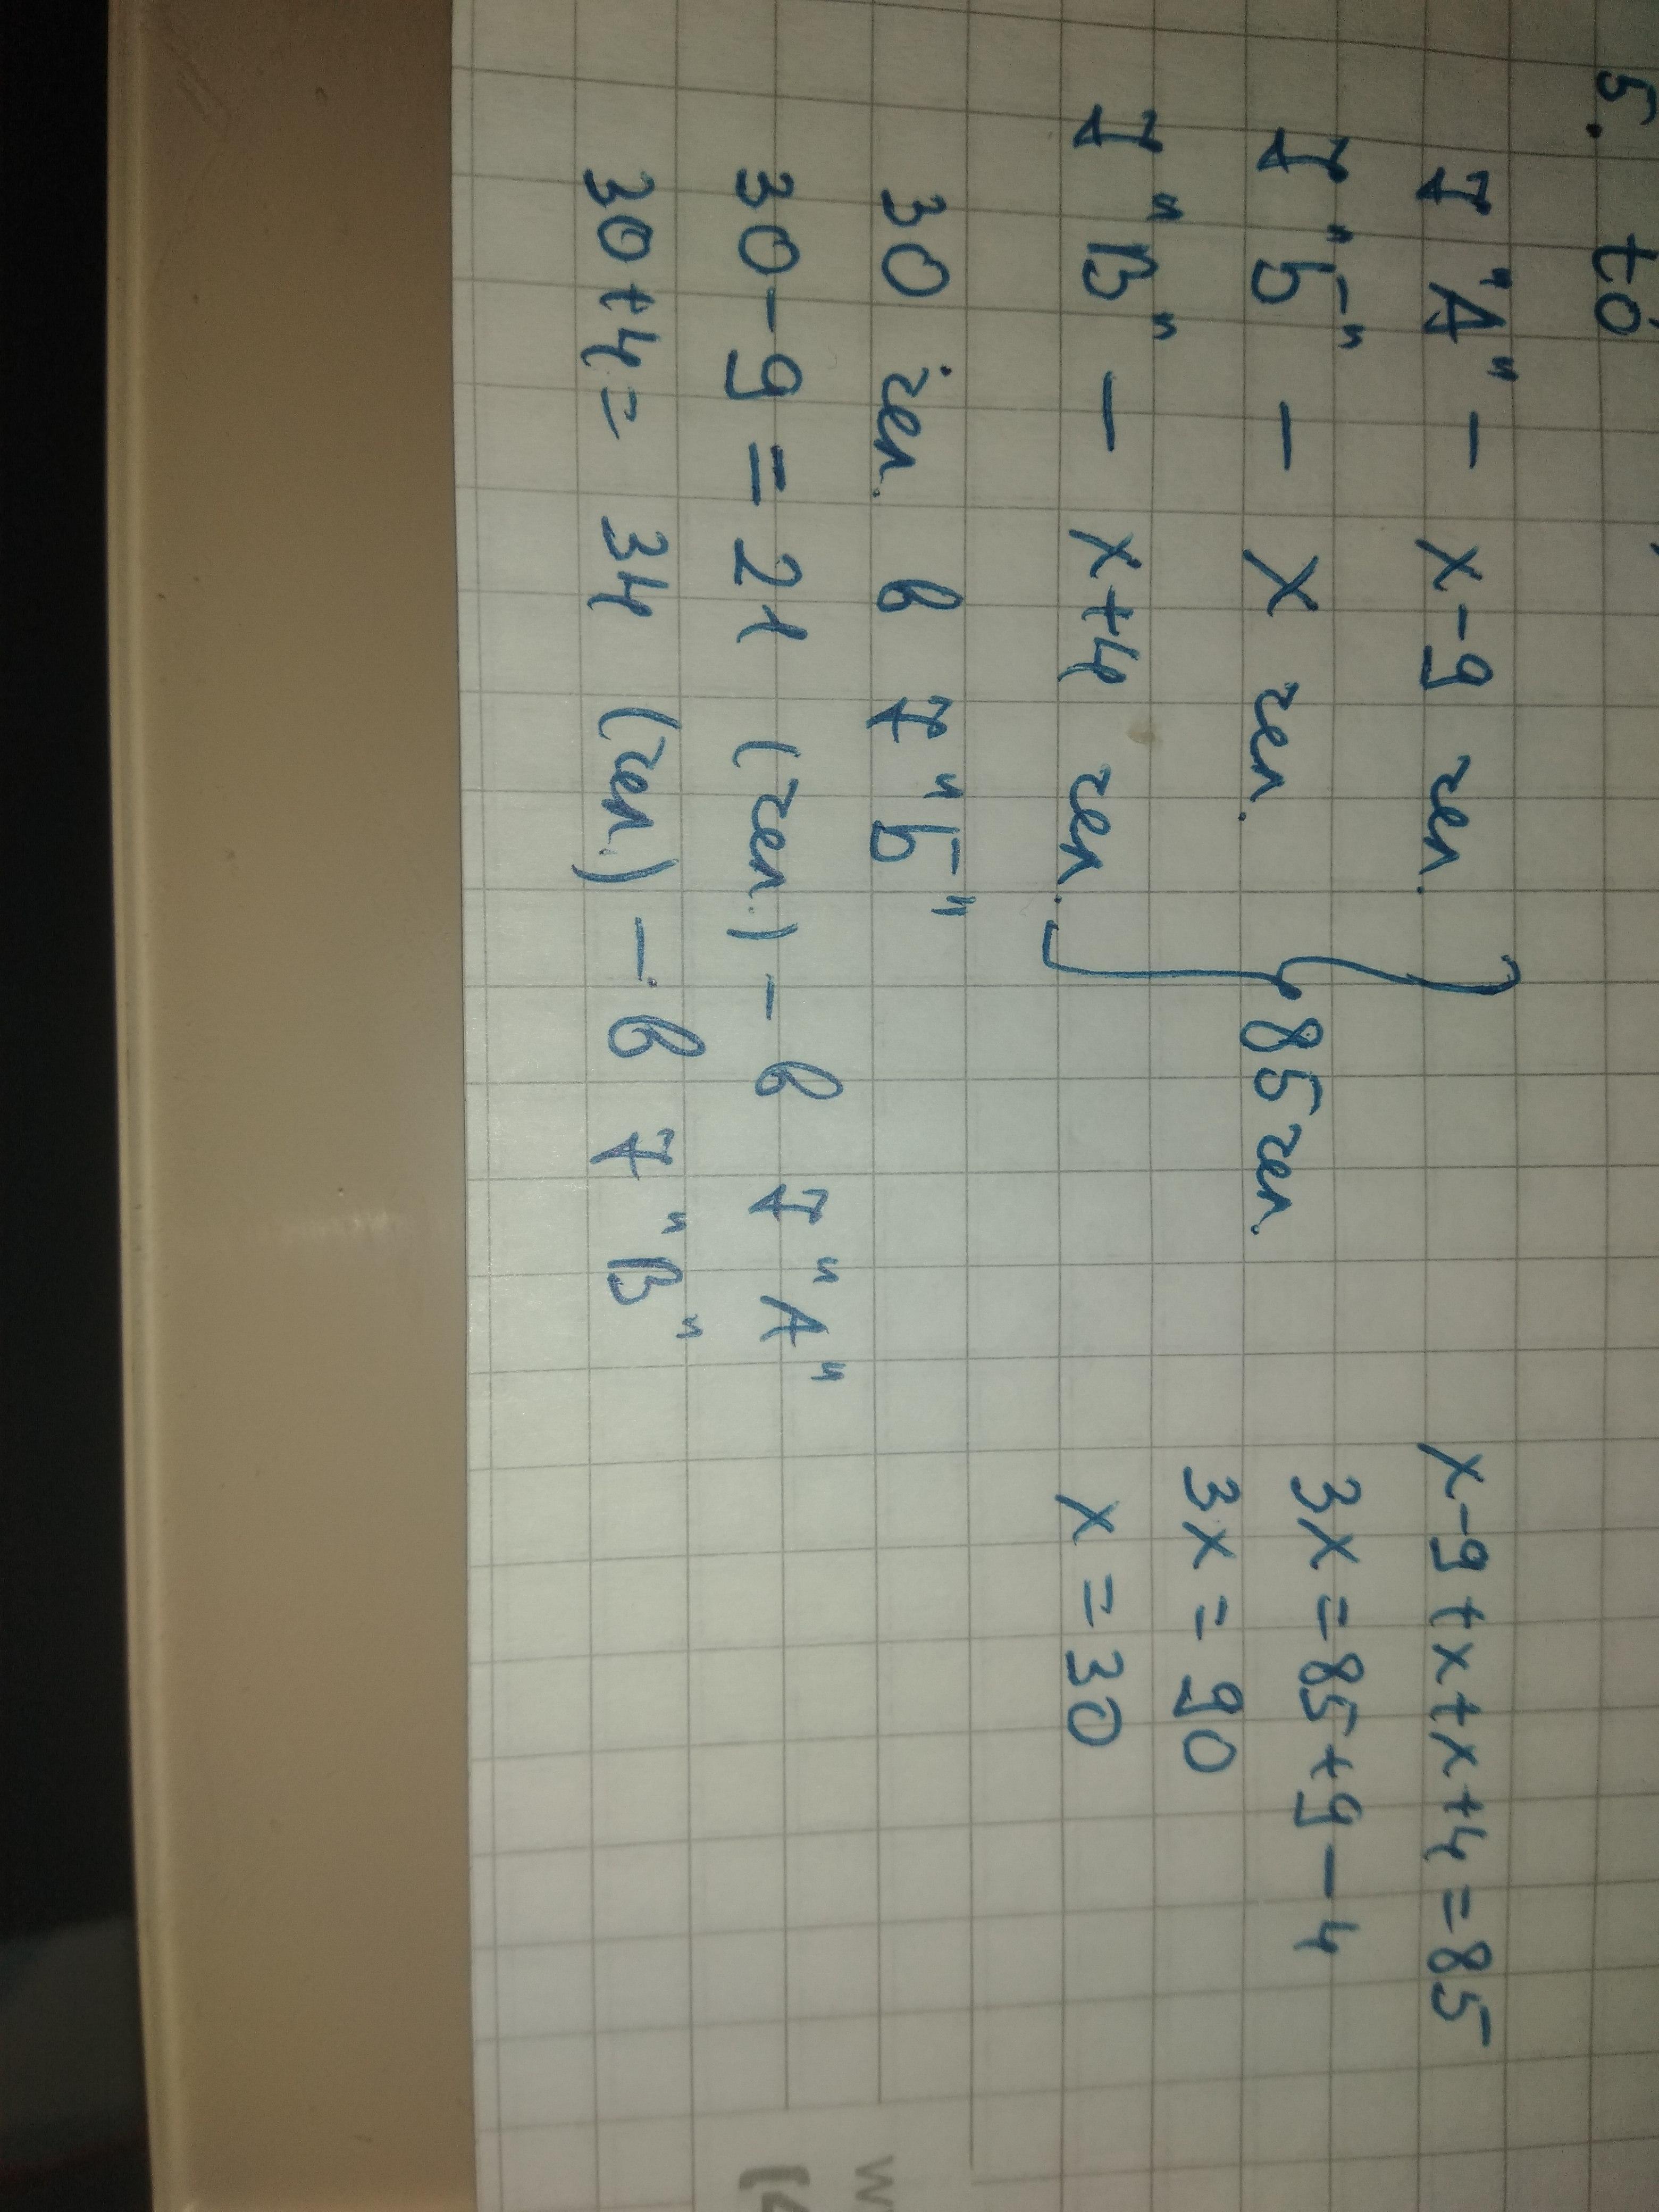 5. to
I "А" - x-9 чел.
I "Б" - x чел.
I "В" - x+4 чел.
85 чел.
x-9+x+x+4=85
3x=85+9-4
3x=90
x=30
30 чел. в I "Б"
30-9=21 (чел.) - в I "А"
30+4=34 (чел.) - в I "В"